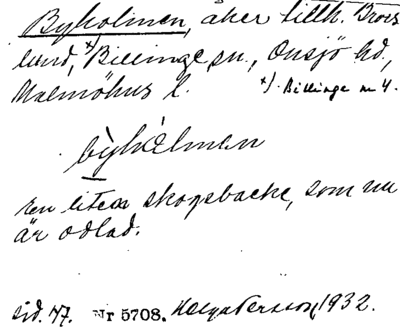 Byholmen, åker tillh. Bros
lund, x) Billinge sn., Onsjö hd.,
Malmöhus l. x). Billinge nr 4.
byhòlmen
En liten skogsbacke, som nu
är odlad.
sid. 47. Nr 5708. Helga Persson, 1932.